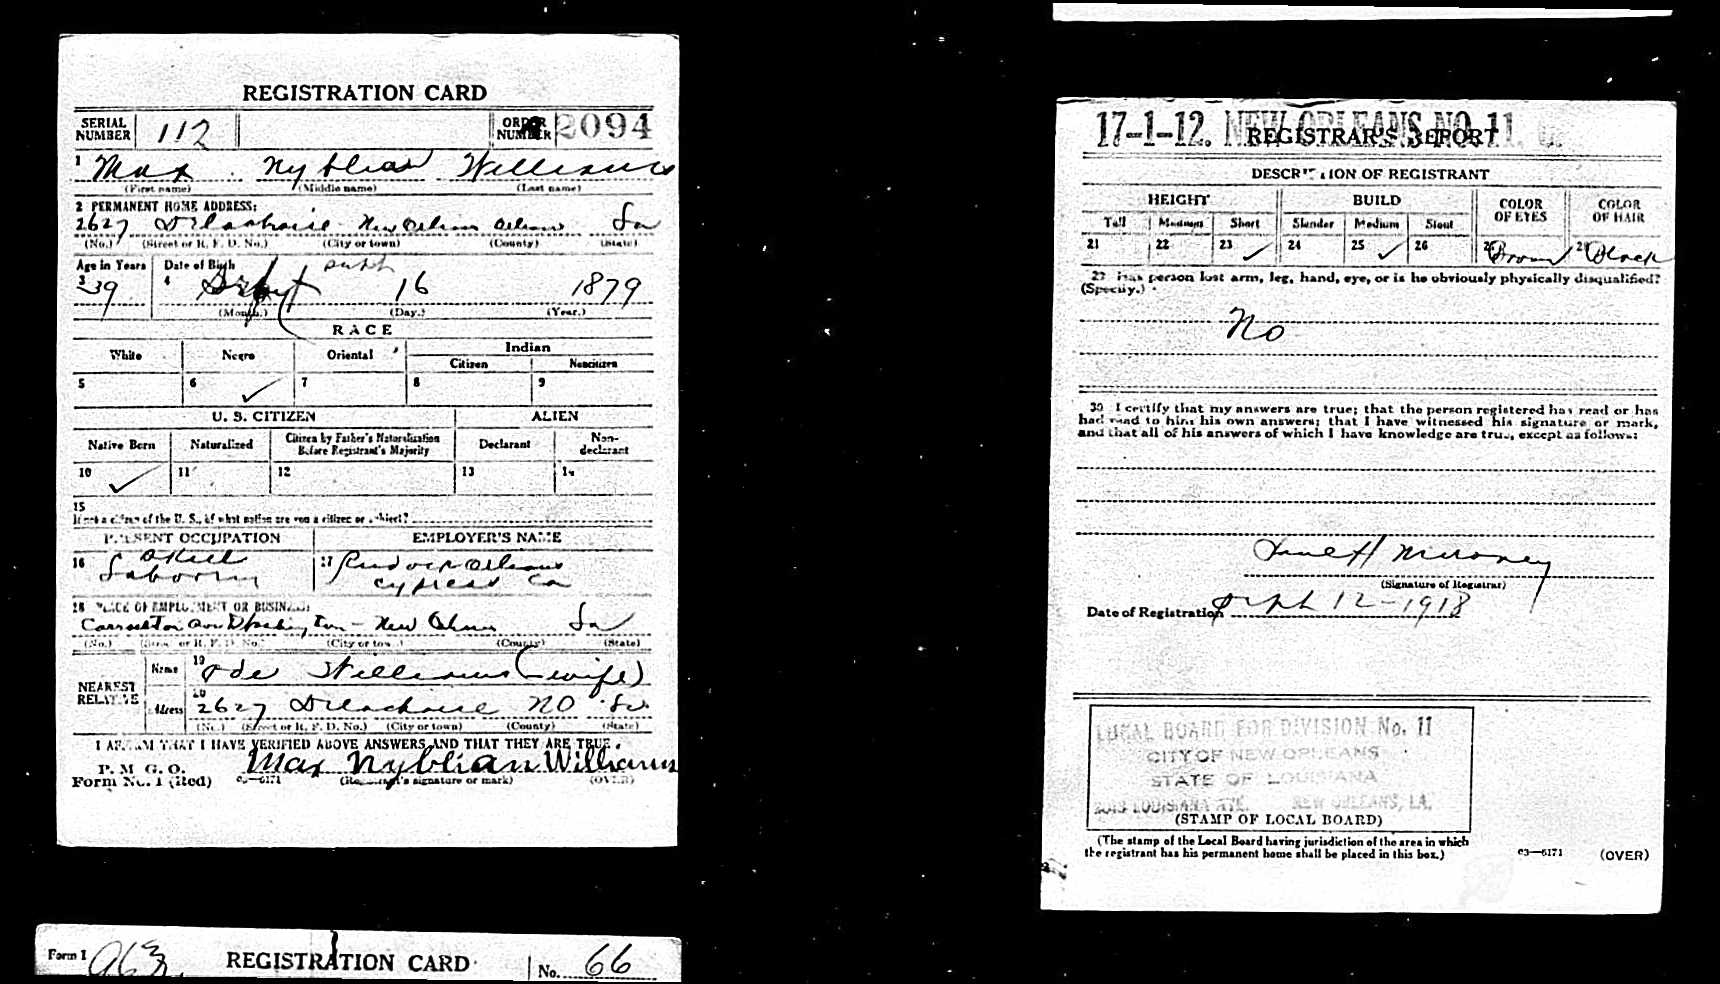 REGISTRATION CARD
SERIAL NUMBER 112 ORDER NUMBER 2094
1 Max Nyblian Williams
(First name) (Middle name) (Last name)
2 PERMANENT HOME ADDRESS:
2627 Delachaise New Orleans Orleans La
(No.) (Street or R. F. D. No.) (City or town) (County) (State)
Age in Years Date of Birth
Sept
3 39 4 16 1879
(Month.) (Day.) (Year.)
RACE
White Negro Oriental Indian
Citizen Noncitizen
5 6 ✓ 7 8 9
U. S. CITIZEN ALIEN
Native Born Naturalized Citizen by Father's Naturalization Before Registrant's Majority Declarant Non-declarant
10 ✓ 11 12 13 14
15
If not a citizen of the U. S., of what nation are you a citizen or subject?
PRESENT OCCUPATION EMPLOYER'S NAME
16 17 Orleans
Cypress Co
18 PLACE OF EMPLOYMENT OR BUSINESS:
Carrollton Ave New Orleans La
(No.) (Street or R. F. D. No.) (City or town) (County) (State)
NEAREST RELATIVE
Name 19 Williams (wife)
Address 20 2627 Delachaise NO La
(No.) (Street or R. F. D. No.) (City or town) (County) (State)
I AFFIRM THAT I HAVE VERIFIED ABOVE ANSWERS AND THAT THEY ARE TRUE.
P. M. G. O.
Form No. 1 (Red) 03—6171 Max Nyblian Williams
(Registrant's signature or mark) (OVER)
Form 1 REGISTRATION CARD No. 66
17-1-12. NEW ORLEANS NO. 11.
REGISTRAR'S REPORT
DESCRIPTION OF REGISTRANT
HEIGHT BUILD COLOR OF EYES COLOR OF HAIR
Tall Medium Short Slender Medium Stout
21 22 23 ✓ 24 25 ✓ 26 27 Brown 28 Black
29 Has person lost arm, leg, hand, eye, or is he obviously physically disqualified?
(Specify.)
No
30 I certify that my answers are true; that the person registered has read or has
had read to him his own answers; that I have witnessed his signature or mark,
and that all of his answers of which I have knowledge are true, except as follows:
(Signature of Registrar)
Date of Registration Sept 12-1918
LOCAL BOARD FOR DIVISION No. 11
CITY OF NEW ORLEANS
STATE OF LOUISIANA
LOUISIANA AVE. NEW ORLEANS, LA.
(STAMP OF LOCAL BOARD)
(The stamp of the Local Board having jurisdiction of the area in which
the registrant has his permanent home shall be placed in this box.)
03—6171 (OVER)